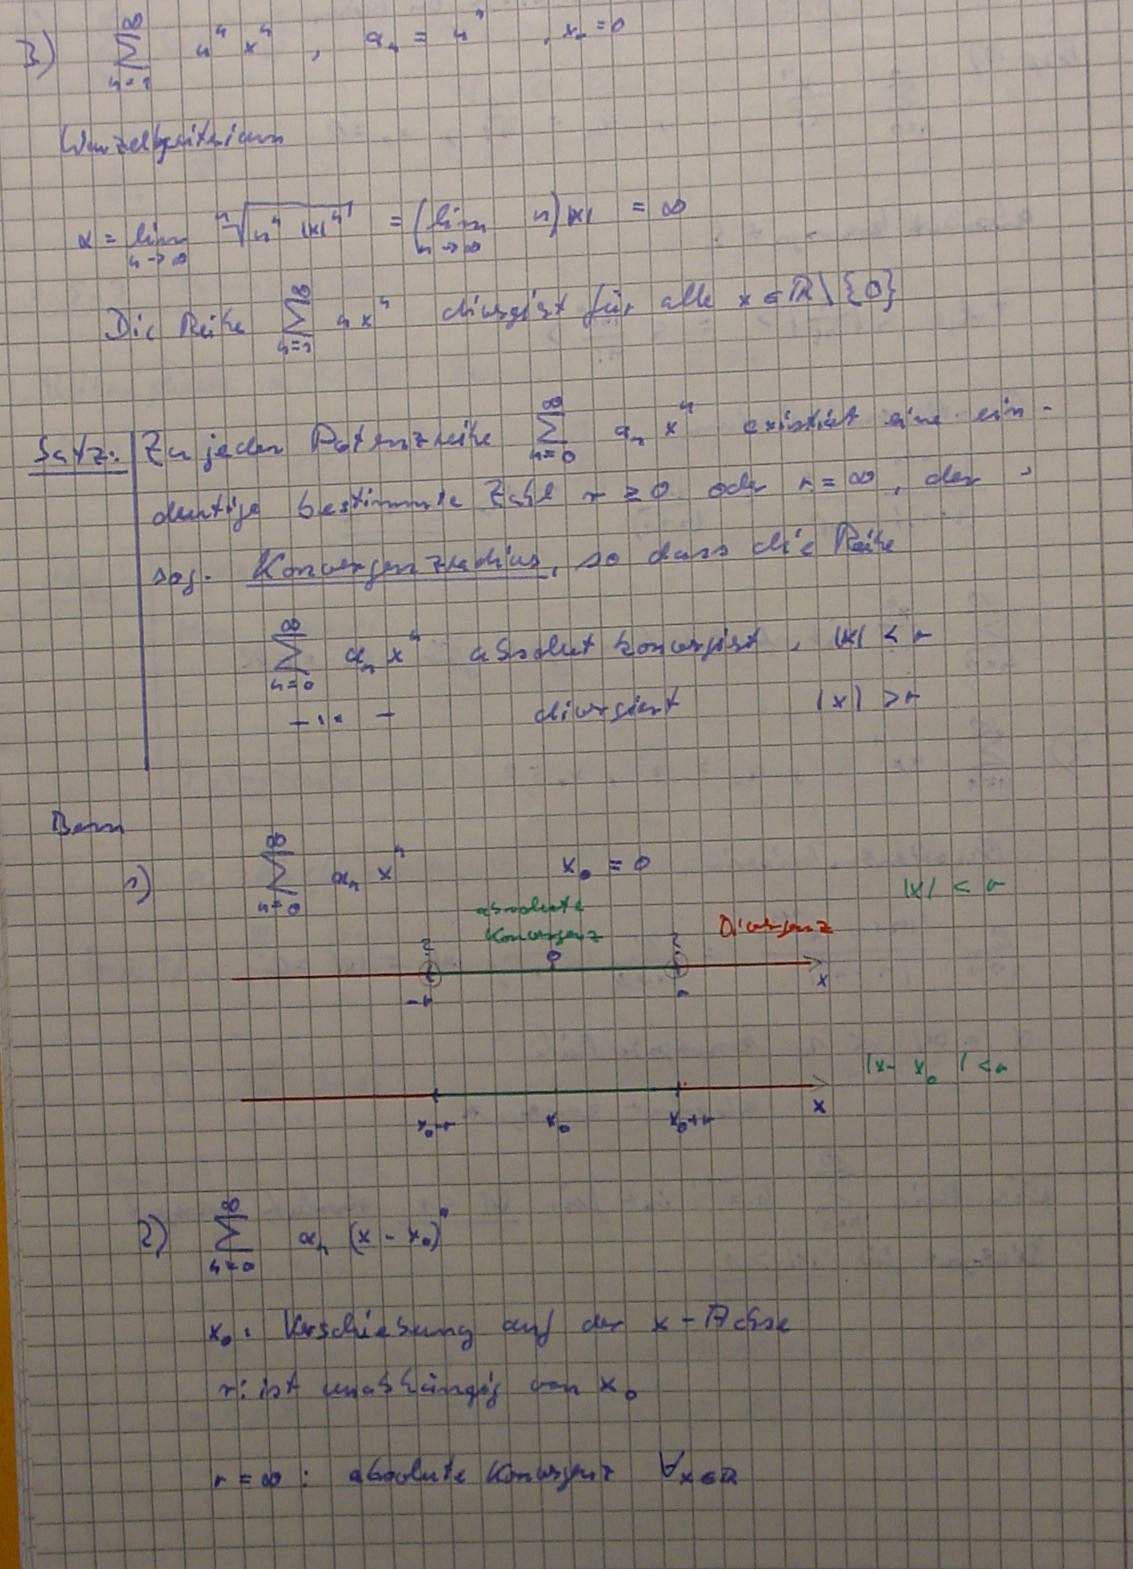 3) ∑_{n=1}^{∞} n^n x^n , a_n = n^n , x_0 = 0
Wurzelkriterium
α = lim_{n→∞} ⁿ√(n^n |x|^n) = (lim_{n→∞} n) |x| = ∞
Die Reihe ∑_{n=1}^{∞} n x^n divergiert für alle x ∈ ℝ \ {0}
Satz: Zu jeder Potenzreihe ∑_{n=0}^{∞} a_n x^n existiert eine ein-
deutige bestimmte Zahl r ≥ 0 oder r = ∞, der
sog. Konvergenzradius, so dass die Reihe
∑_{n=0}^{∞} a_n x^n absolut konvergiert, |x| < r
— ‟ — divergiert |x| > r
Bem
1) ∑_{n=0}^{∞} a_n x^n x_0 = 0
|x| < r
absolute
Konvergenz Divergenz
? 0 ?
-r r x
|x - x_0| < r
x_0-r x_0 x_0+r x
2) ∑_{n=0}^{∞} a_n (x - x_0)^n
x_0: Verschiebung auf der x-Achse
r: ist unabhängig von x_0
r = ∞ : absolute Konvergenz ∀x∈ℝ